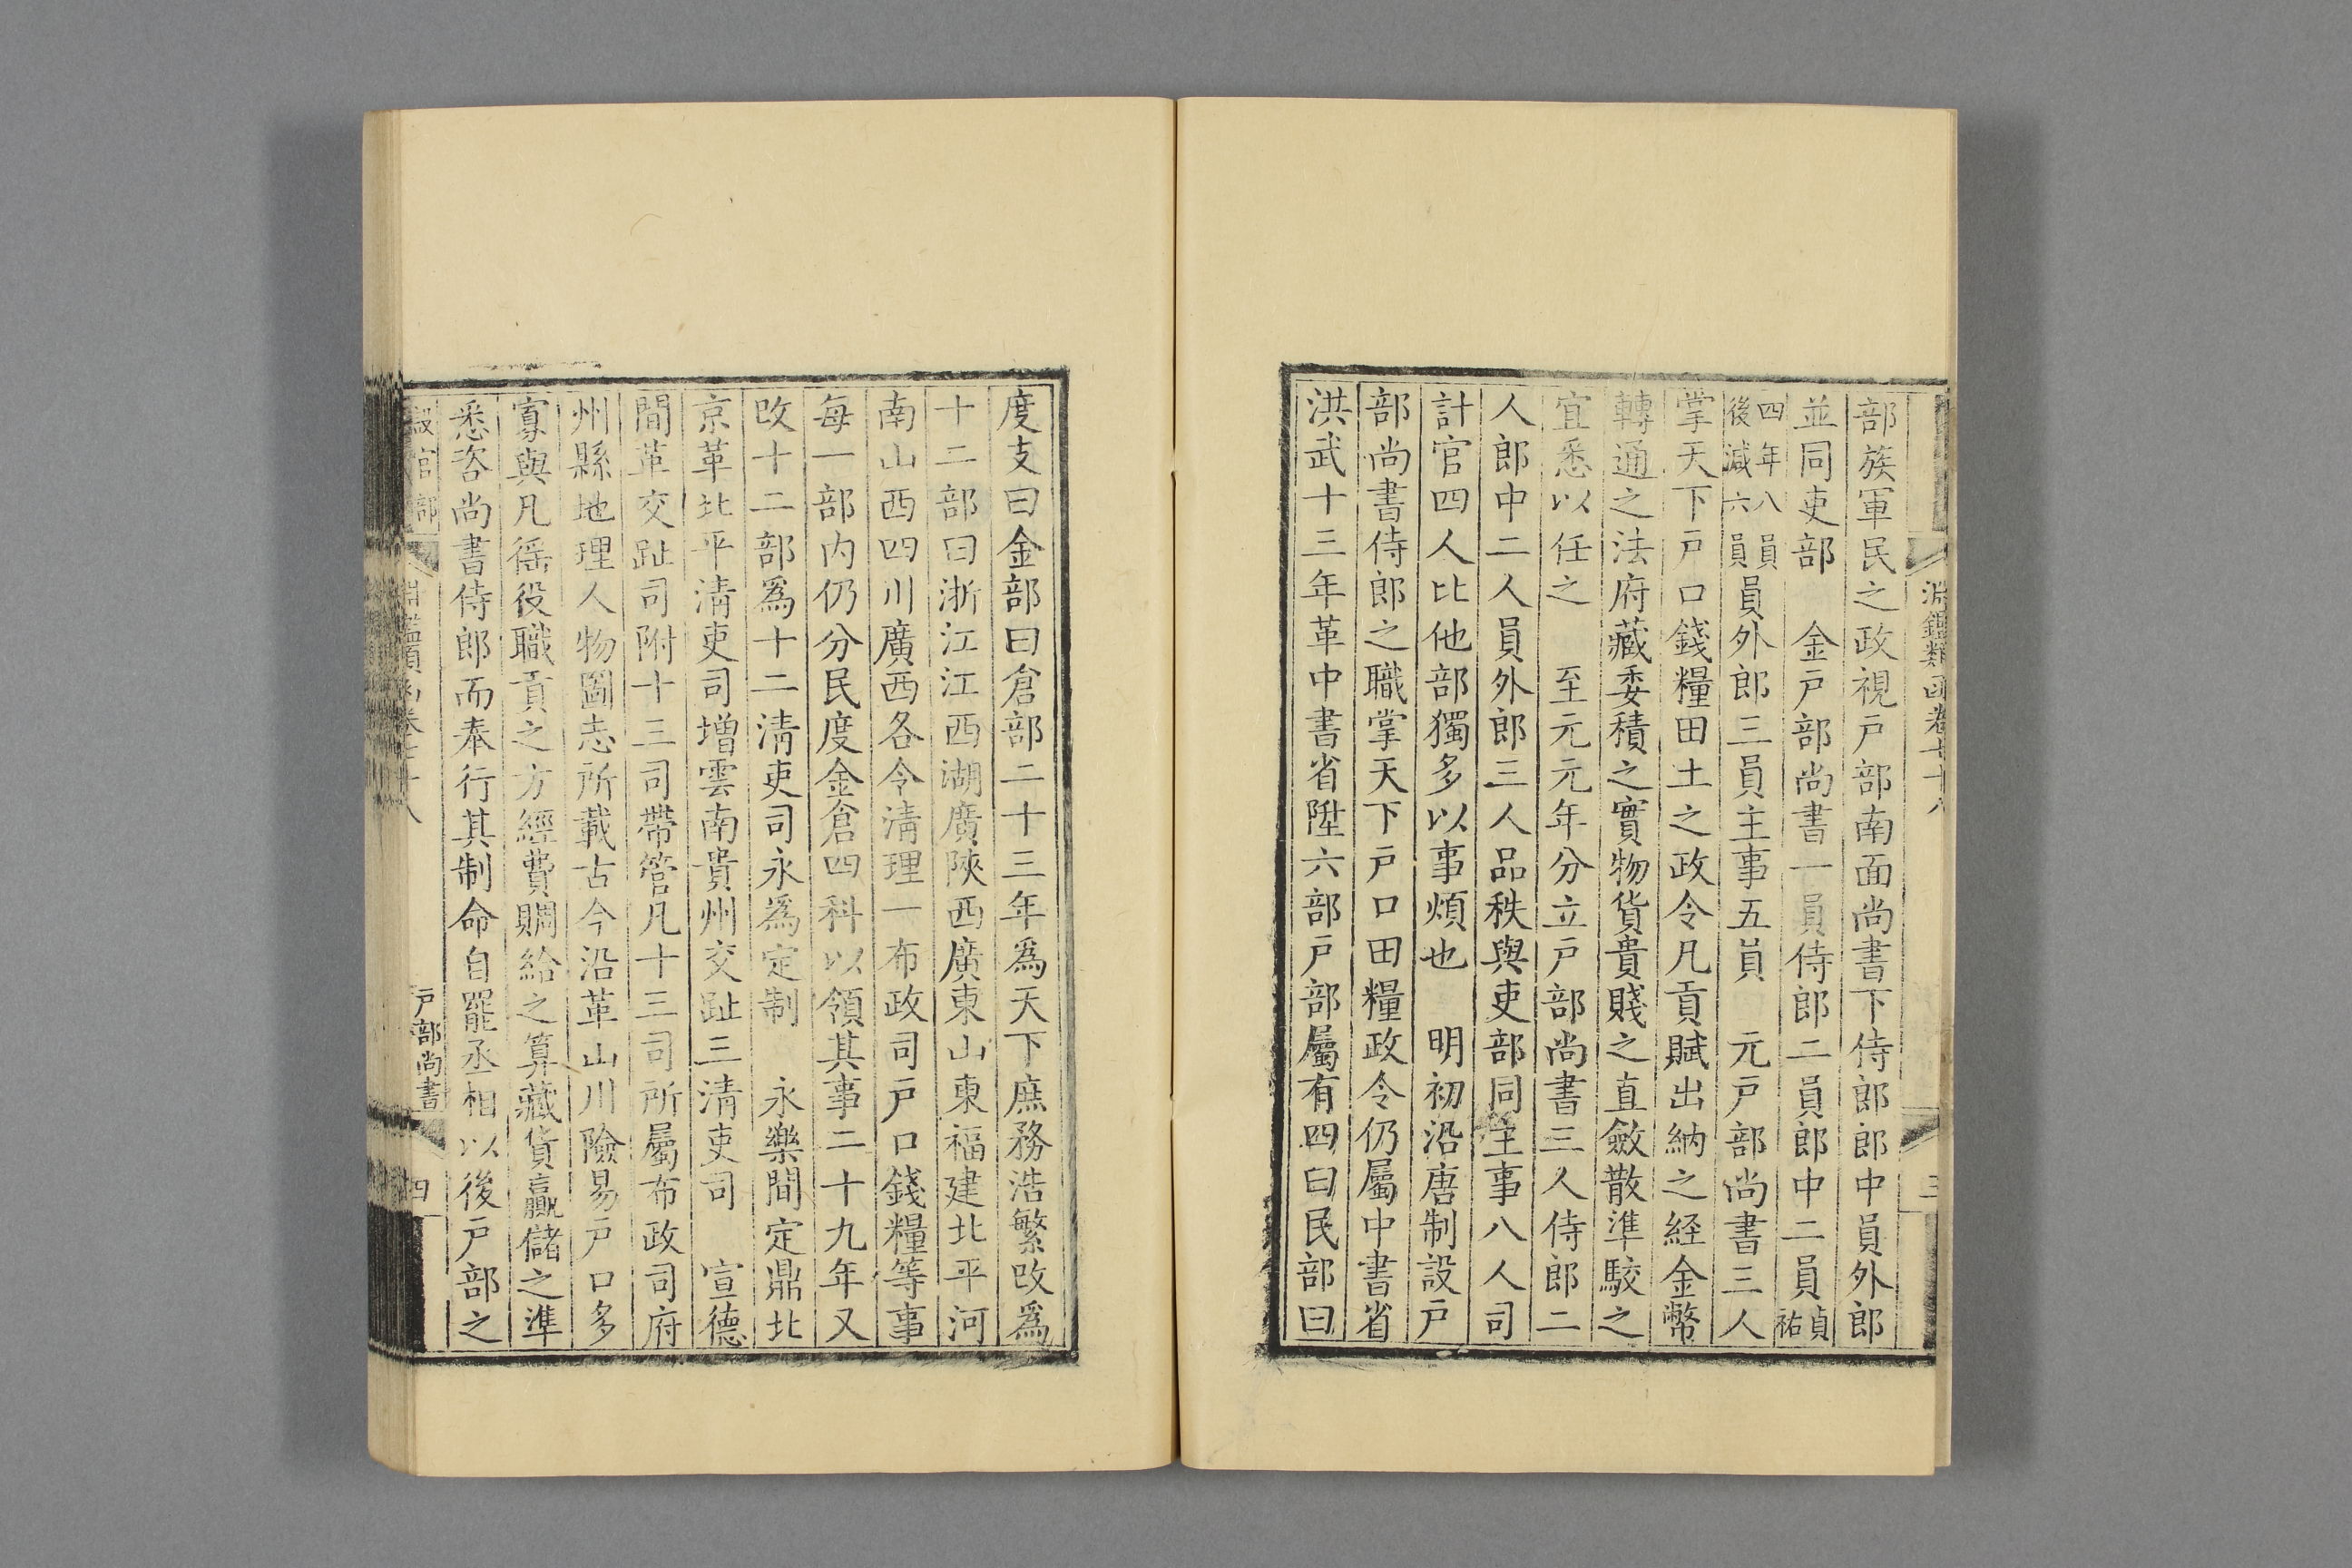 淵鑑類函卷七十八
三
部族軍民之政視戸部南面尚書下侍郎郎中員外郎
並同吏部　金戸部尚書一員侍郎二員郎中二員貞祐
四年八員後減六員員外郎三員主事五員　元戸部尚書三人
掌天下戸口錢糧田土之政令凡貢賦出納之経金幣
轉通之法府藏委積之實物貨貴賤之直斂散準駮之
宜悉以任之　至元元年分立戸部尚書三人侍郎二
人郎中二人員外郎三人品秩與吏部同主事八人司
計官四人比他部獨多以事煩也　明初沿唐制設戸
部尚書侍郎之職掌天下戸口田糧政令仍屬中書省
洪武十三年革中書省陞六部戸部屬有四曰民部曰
度支曰金部曰倉部二十三年爲天下庶務浩繁改爲
十二部曰浙江江西湖廣陜西廣東山東福建北平河
南山西四川廣西各令清理一布政司戸口錢糧等事
每一部内仍分民度金倉四科以領其事二十九年又
改十二部爲十二清吏司永爲定制　永樂間定鼎北
京革北平清吏司增雲南貴州交趾三清吏司　宣德
間革交趾司附十三司帶管凡十三司所屬布政司府
州縣地理人物圖志所載古今沿革山川險易戸口多
寡與凡徭役職貢之方經費賙給之算藏貨贏儲之準
悉咨尚書侍郎而奉行其制命自罷丞相以後戸部之
設官部
淵鑑類函卷七十八
戸部尚書
四